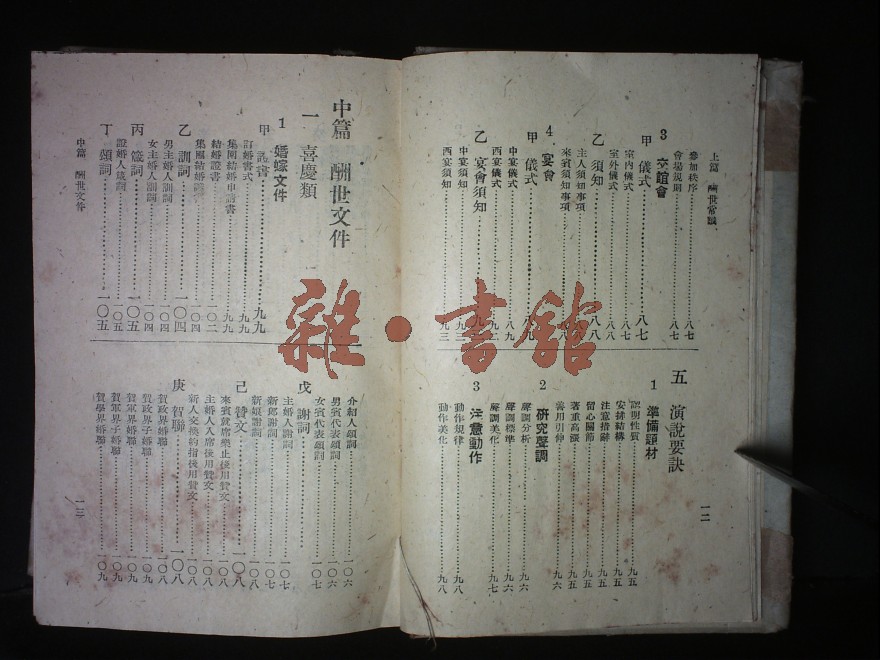 上篇 酬世常識
參加秩序……八七
會場規則……八七
3 交誼會
甲 儀式……八七
室內儀式……八七
室外儀式……八八
乙 須知……八八
主人須知事項……八八
來賓須知事項……八八
4 宴會
甲 儀式
中宴儀式……八九
西宴儀式……九二
乙 宴會須知
中宴須知……九三
西宴須知……九三
五 演說要訣
1 準備題材
認明性質……九五
安排結構……九五
注意措辭……九五
留心關節……九五
著重高漲……九五
善用引伸……九六
2 研究聲調
聲調分析……九六
聲調標準……九六
聲調美化……九七
3 注意動作
動作規律……九八
動作美化……九八
一二
中篇 酬世文件
一 喜慶類
1 婚嫁文件
甲 證書……九九
訂婚書式……九九
集團結婚申請書……九九
結婚證書……一〇二
集團結婚證書……一〇四
乙 訓詞……一〇四
男主婚人訓詞……一〇四
女主婚人訓詞……一〇四
丙 箴詞……一〇五
證婚人箴詞……一〇五
丁 頌詞……一〇五
中篇 酬世文件
介紹人頌詞……一〇六
男賓代表頌詞……一〇六
女賓代表頌詞……一〇七
戊 謝詞
主婚人謝詞……一〇七
新郎謝詞
新娘謝詞……一〇八
己 贊文……一〇八
來賓就席樂止後用贊文……一〇八
主婚人入席後用贊文……一〇八
新人交換約指後用贊文……一〇八
庚 賀聯……一〇八
賀政界婚聯……一〇九
賀政界子婚聯……一〇九
賀軍界婚聯……一〇九
賀軍界子婚聯……一〇九
賀學界婚聯……一〇九
一三
雜·書館